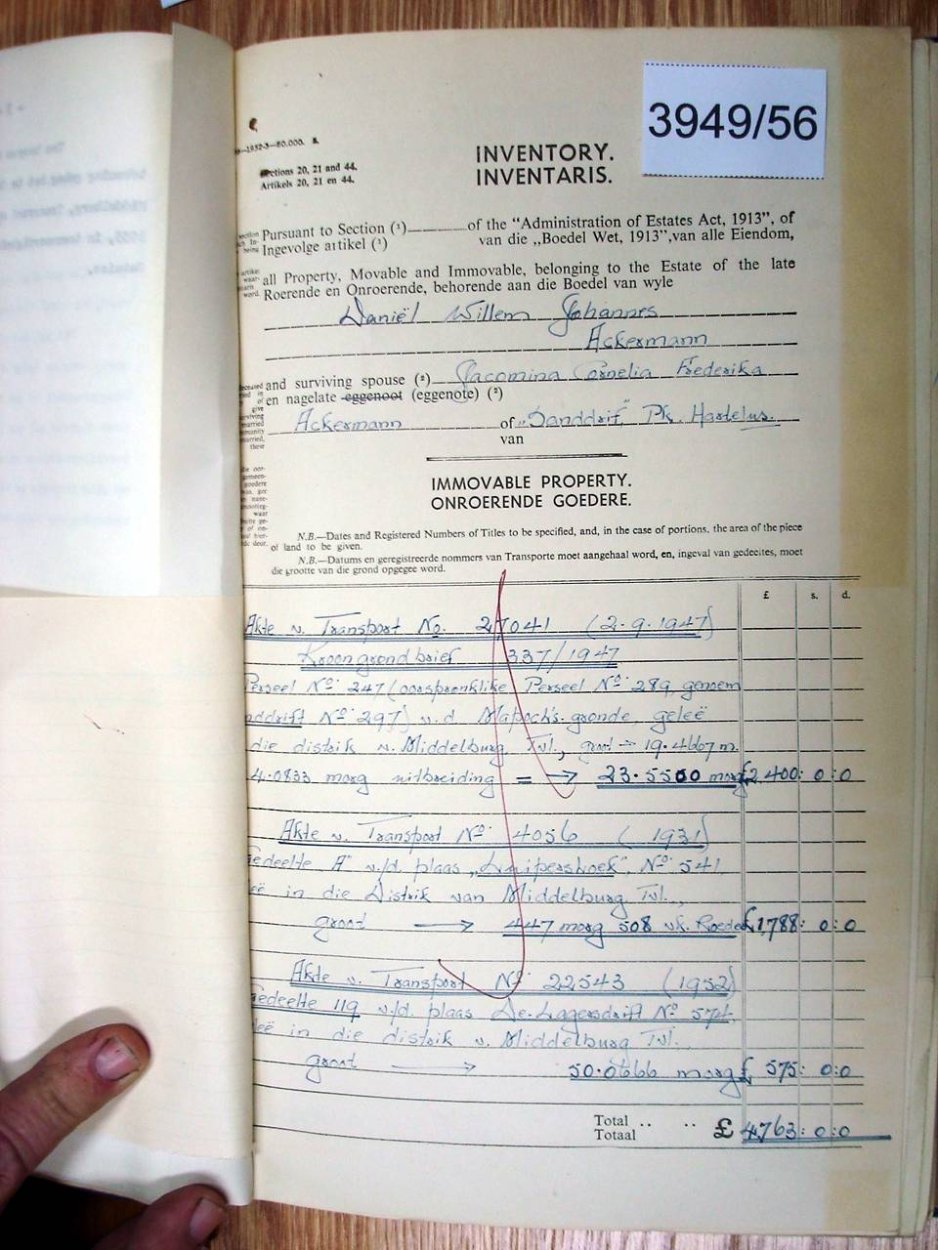 3949/56
—1952-3—80.000. S.
INVENTORY.
INVENTARIS.
Sections 20, 21 and 44.
Artikels 20, 21 en 44.
Pursuant to Section (¹) of the "Administration of Estates Act, 1913", of
Ingevolge artikel (¹) van die „Boedel Wet, 1913", van alle Eiendom,
all Property, Movable and Immovable, belonging to the Estate of the late
Roerende en Onroerende, behorende aan die Boedel van wyle
Daniël Willem Johannes
Ackermann
and surviving spouse (²) Jacomina Cornelia Frederika
en nagelate eggenoot (eggenote) (²)
Ackermann of „Sanddrif" Pk. Hartelus.
van
IMMOVABLE PROPERTY.
ONROERENDE GOEDERE.
N.B.—Dates and Registered Numbers of Titles to be specified, and, in the case of portions, the area of the piece
of land to be given.
N.B.—Datums en geregistreerde nommers van Transporte moet aangehaal word, en, ingeval van gedeeltes, moet
die grootte van die grond opgegee word.
£ s. d.
Akte v. Transport No. 27041 (2.9.1947)
Kroongrondbrief 337/1947
Perseel No. 247 (oorspronklike Perseel No. 289 genoem
nddrift No. 297) v.d. Mapoch's gronde, geleë
die distrik v. Middelburg, Tvl., groot → 19.4667 m.
4.0833 morg uitbreiding = → 23.5500 morg £2,400: 0:0
Akte v. Transport No. 4056 (1931)
Gedeelte "A" v/d. plaas „Kuipershoek", No. 541,
eë in die Distrik van Middelburg Tvl.,
groot → 447 morg 508 vk. Roedes £1,788: 0:0
Akte v. Transport No. 22543 (1952)
Gedeelte 119 v/d. plaas De Lagersdrift No. 574,
eë in die distrik v. Middelburg Tvl.
groot → 50.0666 morg £ 575: 0:0
Total .. .. £ 4763: 0:0
Totaal